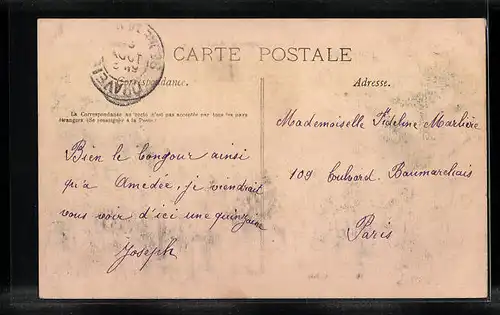 CARTE POSTALE
DRAVEIL
Correspondance.
Adresse.
La Correspondance au recto n'est pas acceptée par tous les pays
étrangers (Se renseigner à la Poste)
Bien le bonjour ainsi
qu'à Amedée, je viendrait
vous voir d'ici une quinzaine
Joseph
Mademoiselle Fideline Marlière
109 Bulvard Baumarchais
Paris